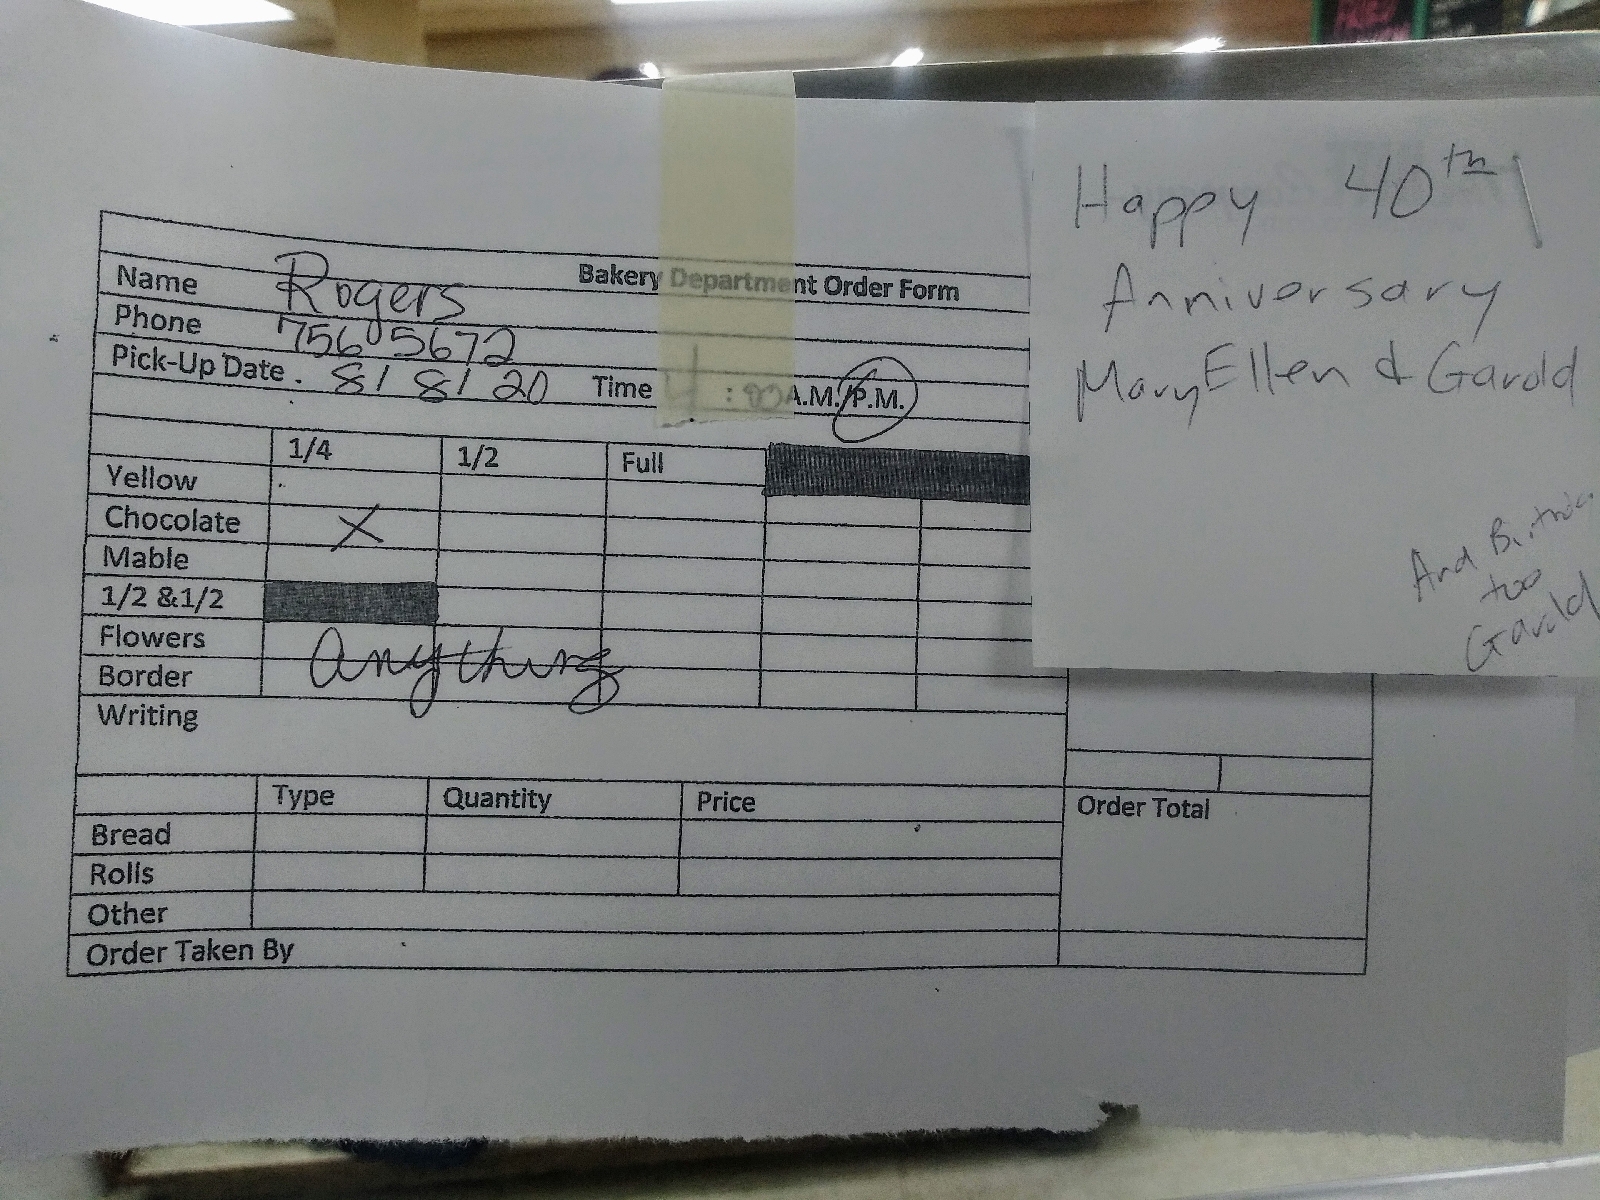 FRIED
Happy 40th
Anniversary
MaryEllen & Garold
And
too
Garold
Bakery Department Order Form
Name Rogers
Phone 756 5672
Pick-Up Date 8/8/20 Time 4:00 A.M./P.M.
1/4 1/2 Full
Yellow
Chocolate X
Mable
1/2 &1/2
Flowers anything
Border
Writing
Type Quantity Price Order Total
Bread
Rolls
Other
Order Taken By